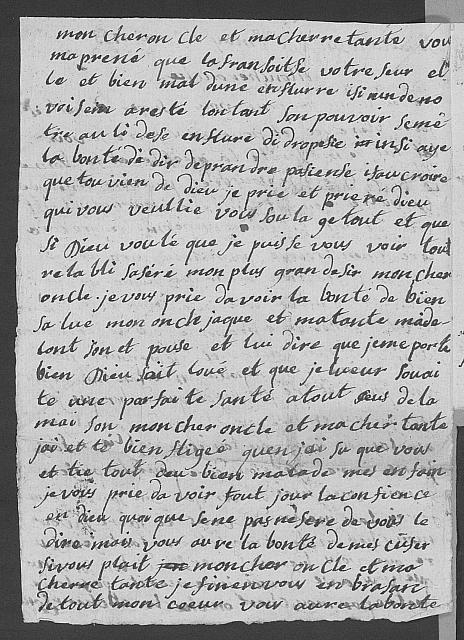 mon cher on cle et ma cher re tante vou
ma prené que la fran soitse votre seur el
le et bien mal dune en flurre isi un de no
voisem a resté lon tant son pouvoir se mê
tre au li dese en fluré di dropesie in insi aye
la bonté de dir de prandre pasiense i sau croire
que tou vien de dieu je prie et prieré dieu
qui vous veullie vous sou la ge tout et que
si Dieu voulé que je puisse vous voir tout
re ta bli sa séré mon plus gran desir mon cher
oncle je vous prie da voir la bonté de bien
sa lue mon oncle jaque et ma tante made
lont son et pouse et lui dire que je me porte
bien Dieu sait loué et que je lueur souai
te une par faite santé a tout seus de la
mai son mon cher oncle et ma cher tante
jai et té bien fligeé quen jai su que vous
et tié tout deu bien malade mes en fain
je vous prie da voir tout jour la confience
en dieu quoi que se ne pas nésere de vous le
dire mais vous au re la bonté de mes cuser
si vous plait mon cher on cle et ma
cherre tante je fin en vous en brasan
de tout mon coeur vour aure la bonte